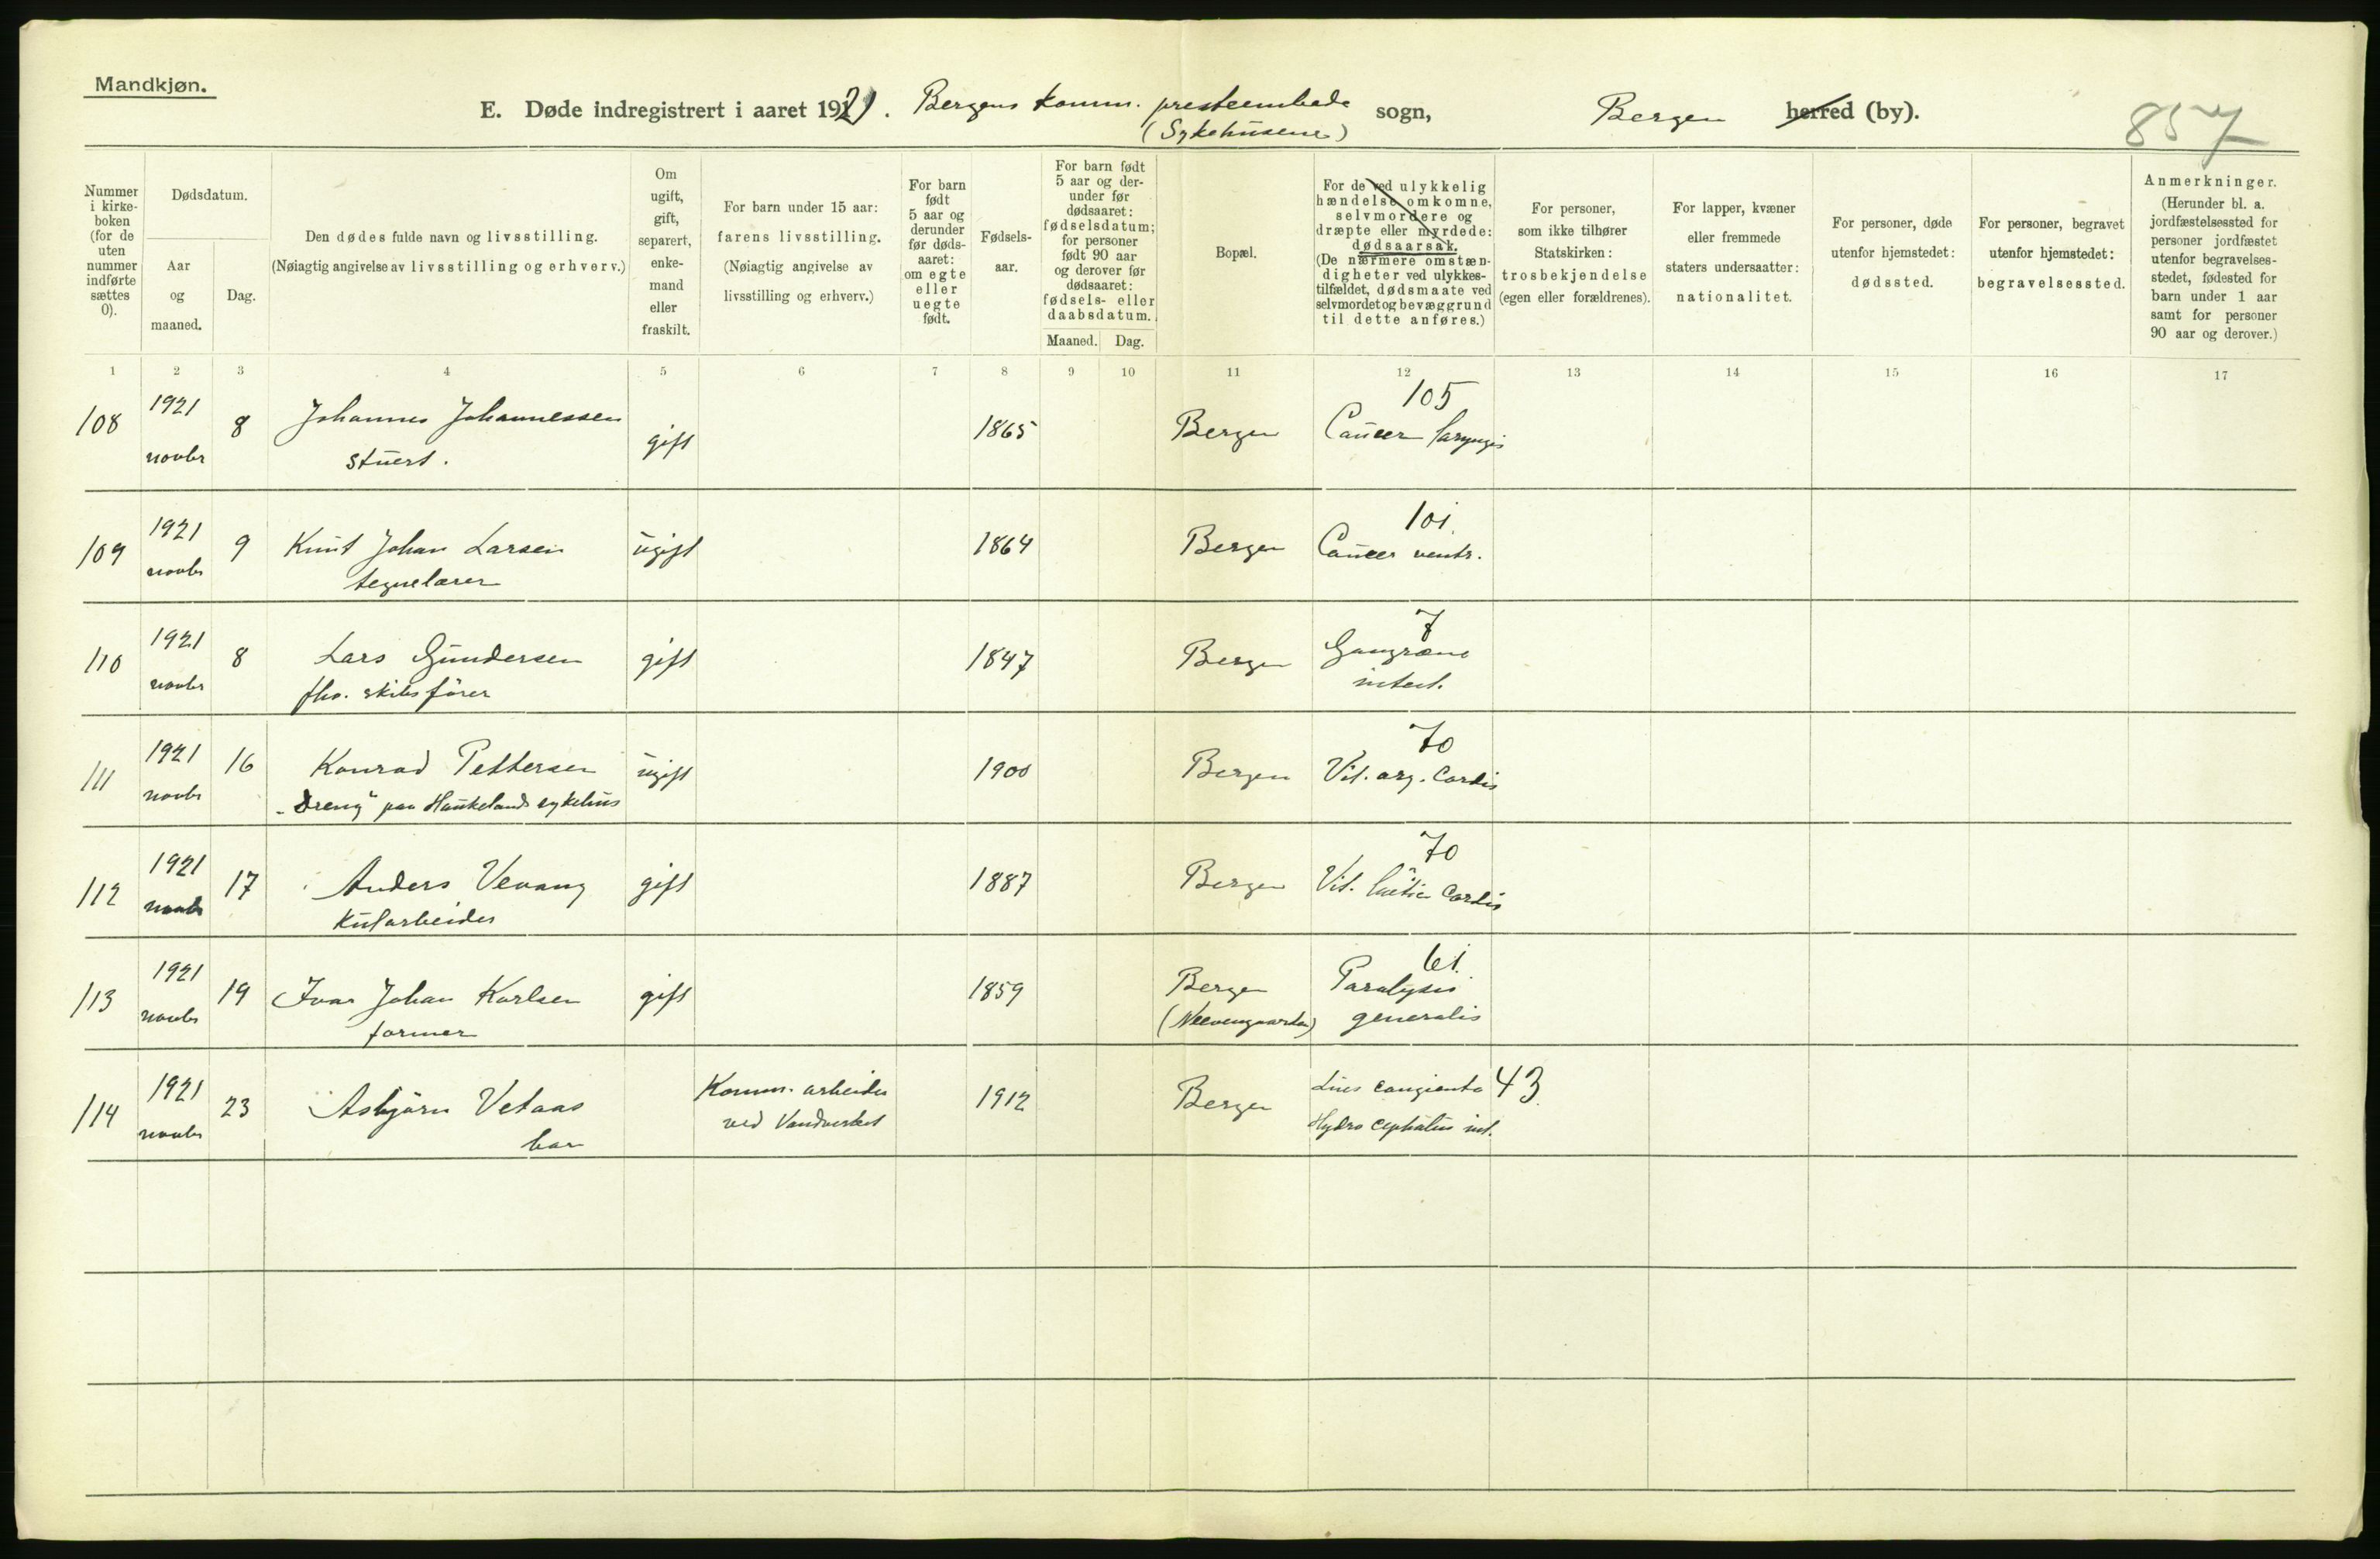 Mandkjøn.
E. Døde indregistrert i aaret 1921. Bergens komm. presteembede sogn, Bergen herred (by).
(Sykehusene)
857
Nummer i kirke-boken (for de uten nummer indførte sættes 0).
Dødsdatum.
Aar og maaned.
Dag.
Den dødes fulde navn og livsstilling.
(Nøiagtig angivelse av livsstilling og erhverv.)
Om ugift, gift, separert, enke-mand eller fraskilt.
For barn under 15 aar:
farens livsstilling.
(Nøiagtig angivelse av
livsstilling og erhverv.)
For barn født 5 aar og derunder før døds-aaret: om egte eller uegte født.
Fødsels-aar.
For barn født 5 aar og der-under før dødsaaret: fødselsdatum; for personer født 90 aar og derover før dødsaaret: fødsels- eller daabsdatum.
Maaned. Dag.
Bopæl.
For de ved ulykkelig hændelse omkomne, selvmordere og dræpte eller myrdede: dødsaarsak.
(De nærmere omstæn-digheter ved ulykkes-tilfældet, dødsmaate ved selvmordet og bevæggrund til dette anføres.)
For personer, som ikke tilhører Statskirken: trosbekjendelse (egen eller forældrenes).
For lapper, kvæner eller fremmede staters undersaatter: nationalitet.
For personer, døde utenfor hjemstedet: dødssted.
For personer, begravet utenfor hjemstedet: begravelsessted.
Anmerkninger.
(Herunder bl. a. jordfæstelsessted for personer jordfæstet utenfor begravelses-stedet, fødested for barn under 1 aar samt for personer 90 aar og derover.)
1 2 3 4 5 6 7 8 9 10 11 12 13 14 15 16 17
108 1921 novbr 8 Johannes Johannessen gift 1865 Bergen 105 Cancer laryngis
stuert.
109 1921 novbr 9 Knut Johan Larsen ugift 1864 Bergen 101. Cancer ventr.
tegnelærer
110 1921 novbr 8 Lars Gundersen gift 1847 Bergen 7 Gangræne
fhv. skibsfører intest.
111 1921 novbr 16 Konrad Pettersen ugift 1900 Bergen 70 Vit. org. Cordis
"Dreng" paa Haukelands sykehus
112 1921 novbr 17 Anders Vevang gift 1887 Bergen 70 Vit. luetic Cordis
Kularbeider
113 1921 novbr 19 Ivar Johan Karlsen gift 1859 Bergen 61. Paralysis
former (Neevengaarden) generalis
114 1921 novbr 23 Asbjørn Vetaas Komm. arbeider 1912 Bergen Lues congienta 43
barn ved Vandverket Hydrocephalus int.